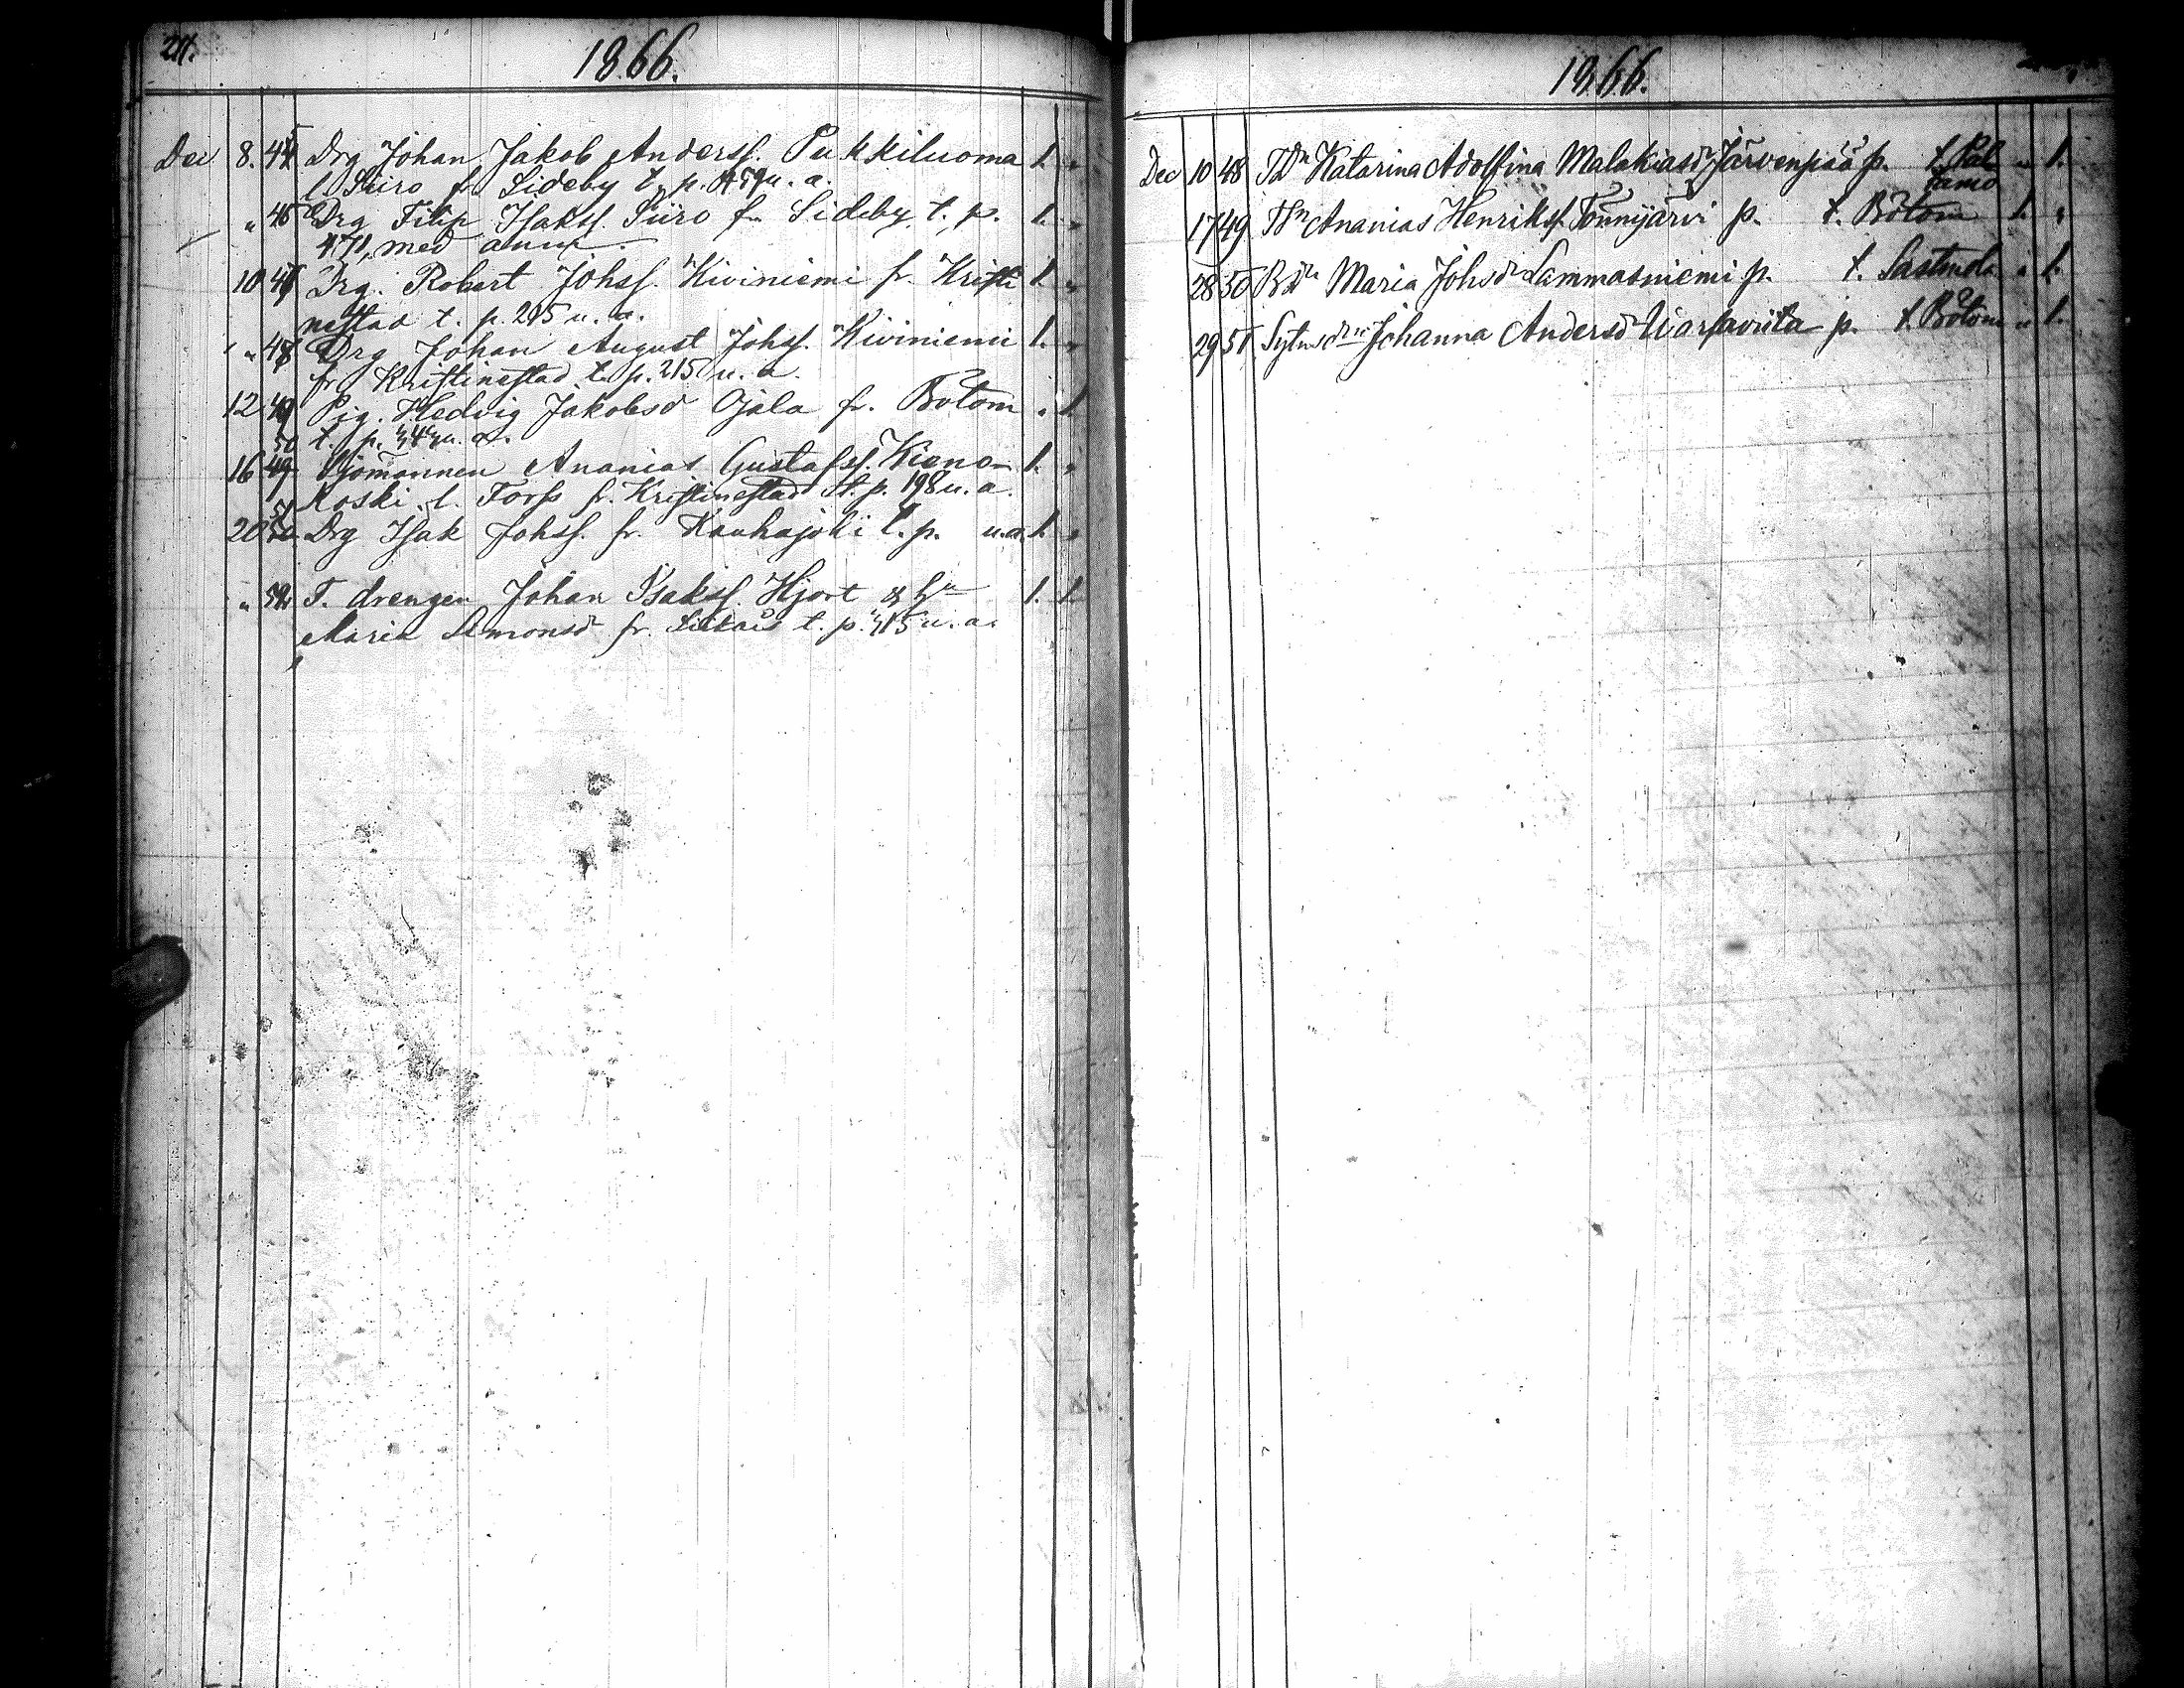 24.
1866.
Dec 8. 45 Drg Johan Jakob Anderss. Pukkiluoma 1. "
l. Siiro fr Sideby t. p. 459 u. a.
" 46 Drg Filip Isakss. Siiro fr Sideby t. p. 1. "
471, med anm.
10 47 Drg. Robert Johss. Kiviniemi fr. Kristi 1. "
nestad t. p. 215 u. a.
" 48 Drg Johan August Johss. Kiviniemi 1. "
fr Kristinestad t. p. 215 u. a.
12 49 Pig. Hedvig Jakobsd Ojala fr. Bötom " 1.
t. p. u. a.
16 50 Sjömannen Ananias Gustafss. Kienon 1. "
Koski l. Forss fr. Kristinestad t. p. 198 u. a.
20 51 Drg Isak Johss. fr. Kauhajoki t. p. u. a. 1. "
" 52 T. drengen Johan Isakss. Hjort & hu 1. 1.
Maria Simonsd fr. t. p. 415 u. a.
1866.
Dec 10 48 Tdn Katarina Adolfina Malakiasdr Järvenpää p. t. Pal " 1.
tamo
17 49 Tsn Ananias Henrikss. Tönnijärvi p. t. Bötom 1. "
28 50 Bdn Maria Johsdr Lammasniemi p. t. Sastmola " 1.
29 51 Sytn Johanna Andersdr p. t. Bötom " 1.